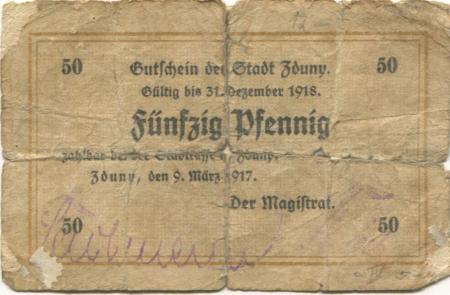 50 Gutschein der Stadt Zduny. 50
Gültig bis 31. Dezember 1918.
Fünfzig Pfennig
zahlbar bei der Stadtkasse in Zduny.
Zduny, den 9. März 1917.
Der Magistrat.
50 50